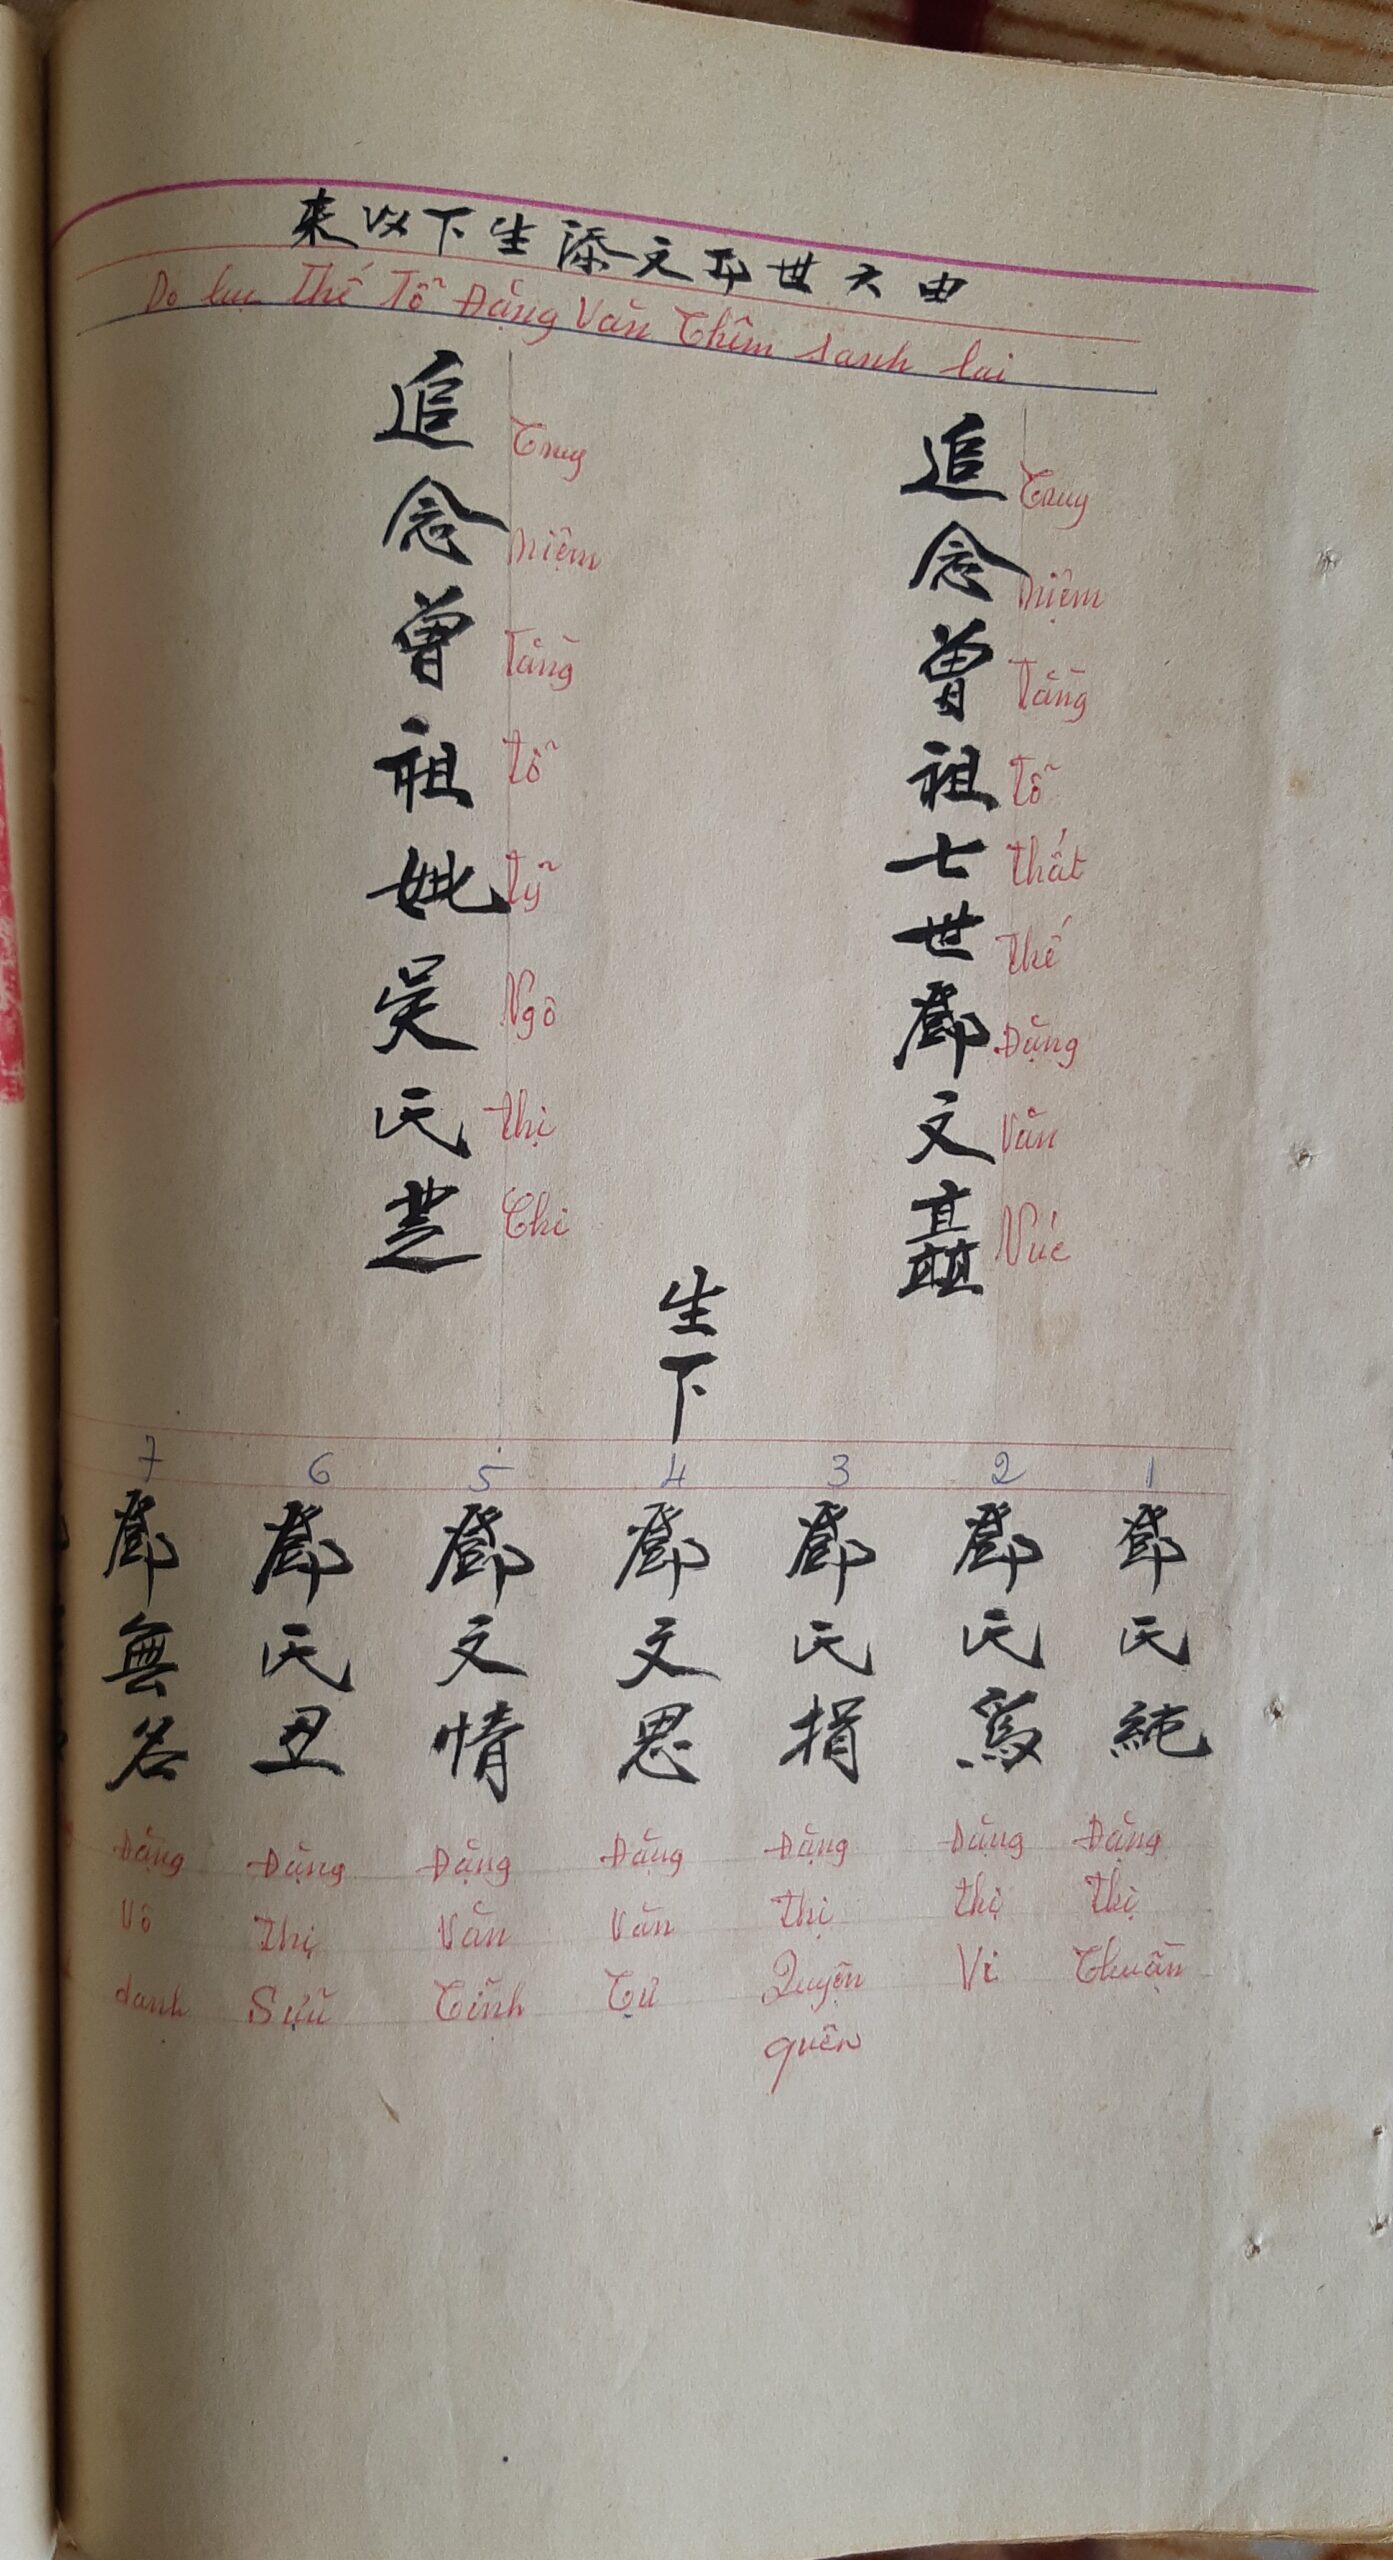 由六世卪文添生下以来
Do lục Thế Tỗ Đặng Văn Thîm sanh lai
追念曾祖七世鄧文矗
Truy niệm Tằng Tỗ thất thế Đặng Văn Núc
追念曾祖妣吳氏芝
Truy niệm Tằng tỗ tỹ Ngô thị Chi
生下
1 2 3 4 5 6 7
鄧氏純
鄧氏爲
鄧氏捐
鄧文思
鄧文情
鄧氏丑
鄧無名
Đặng thị Thuần
Đặng thị Vi
Đặng thị Quyên quên
Đặng Văn Tư
Đặng Văn Tình
Đặng thị Sửu
Đặng Vô danh